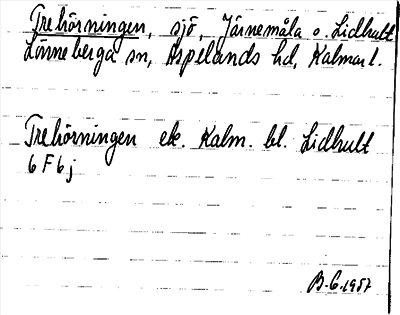 Trehörningen, sjö, Järnemåla o. Lidhult
Lönneberga sn, Aspelands hd, Kalmar l.
Trehörningen ek. Kalm. bl. Lidhult
6 F 6 j
B. G. 1957